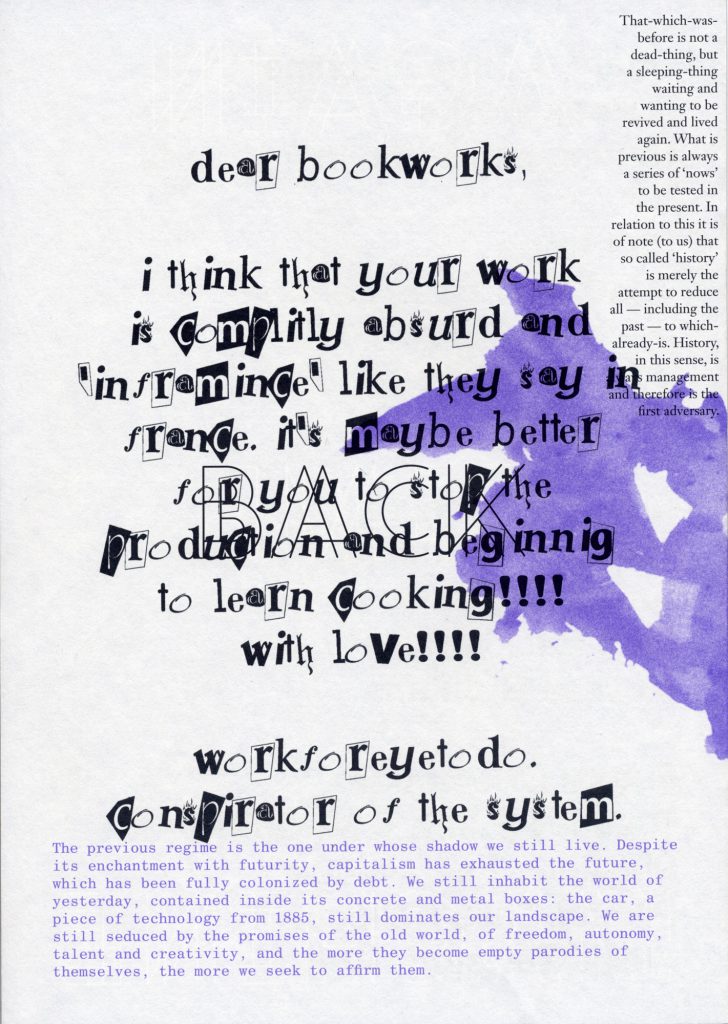 That-which-was-
before is not a
dead-thing, but
a sleeping-thing
waiting and
wanting to be
revived and lived
again. What is
previous is always
a series of ‘nows’
to be tested in
the present. In
relation to this it is
of note (to us) that
so called ‘history’
is merely the
attempt to reduce
all — including the
past — to which-
already-is. History,
in this sense, is
always management
and therefore is the
first adversary.
dear bookworks,
i think that your work
is complitly absurd and
'inframince' like they say in
france. it's maybe better
for you to stop the
BACK
production and beginnig
to learn cooking!!!!
with love!!!!
workforeyetodo.
conspirator of the system.
The previous regime is the one under whose shadow we still live. Despite
its enchantment with futurity, capitalism has exhausted the future,
which has been fully colonized by debt. We still inhabit the world of
yesterday, contained inside its concrete and metal boxes: the car, a
piece of technology from 1885, still dominates our landscape. We are
still seduced by the promises of the old world, of freedom, autonomy,
talent and creativity, and the more they become empty parodies of
themselves, the more we seek to affirm them.